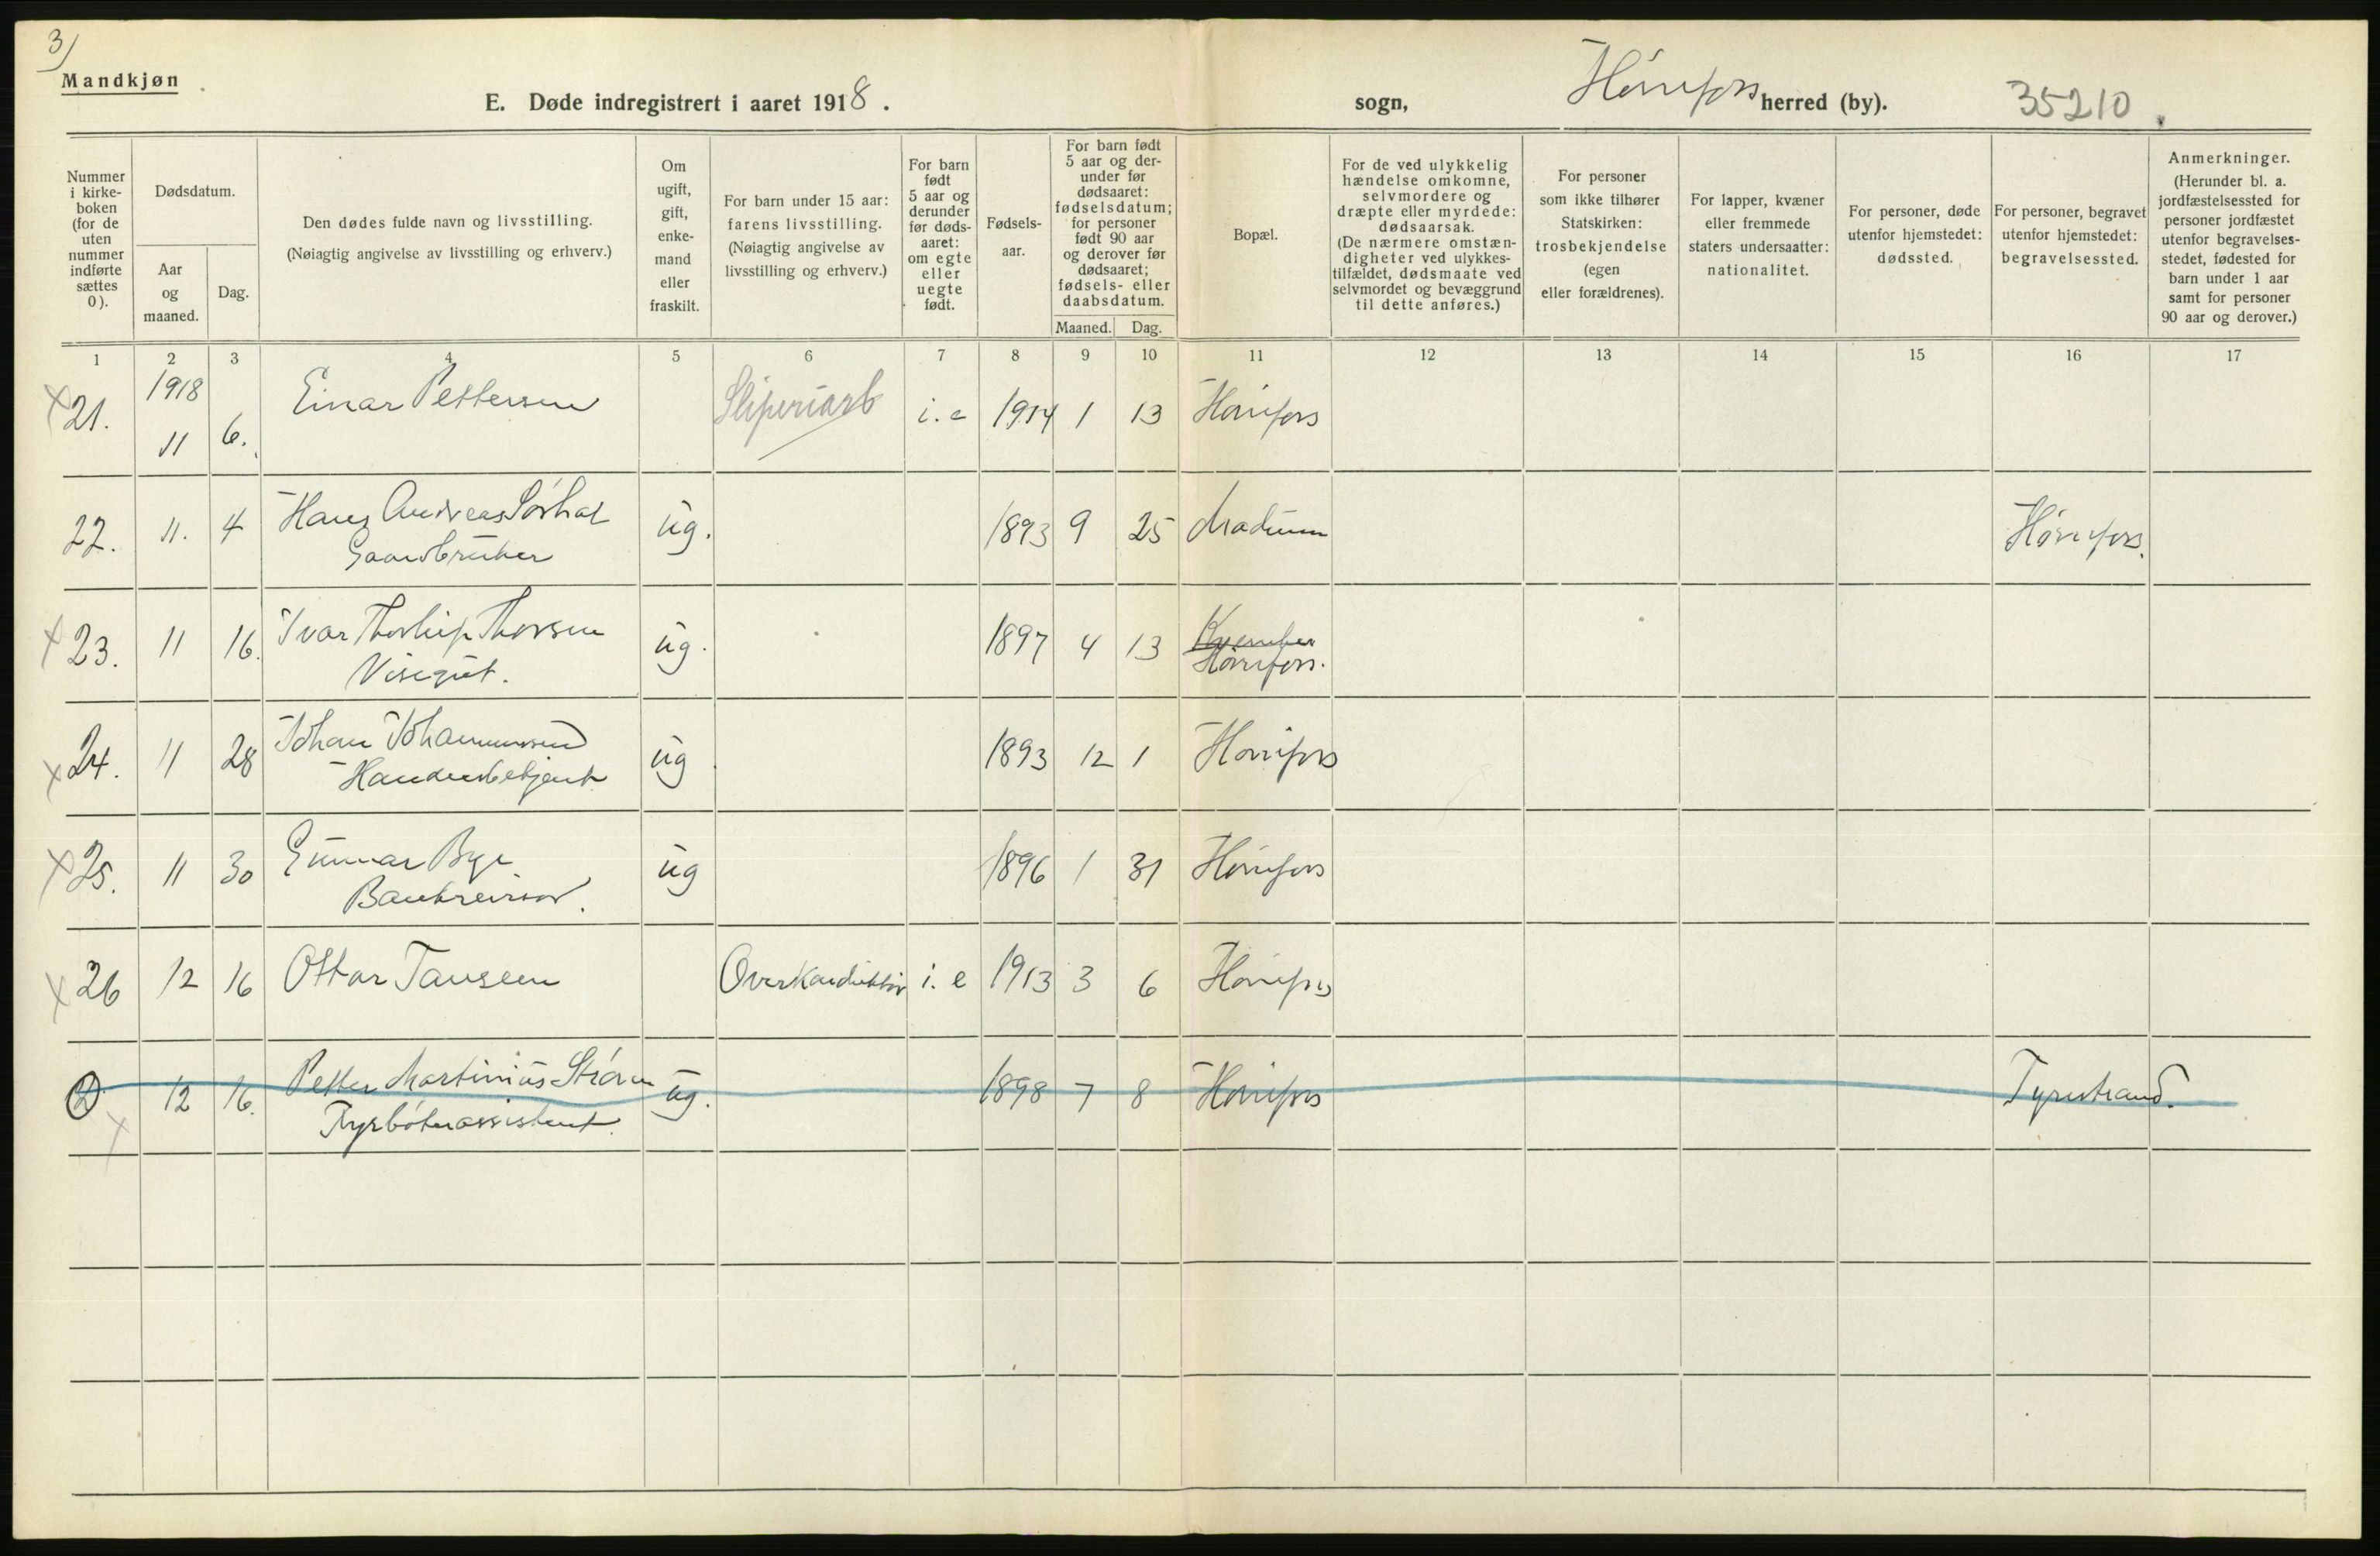 3)
Mandkjøn
E. Døde indregistrert i aaret 1918.
sogn, Hønefoss herred (by). 35210.
Nummer i kirke-boken (for de uten nummer indførte sættes 0).
Dødsdatum.
Aar og maaned.
Dag.
Den dødes fulde navn og livsstilling.
(Nøiagtig angivelse av livsstilling og erhverv.)
Om ugift, gift, enke-mand eller fraskilt.
For barn under 15 aar: farens livsstilling.
(Nøiagtig angivelse av livsstilling og erhverv.)
For barn født 5 aar og derunder før døds-aaret: om egte eller uegte født.
Fødsels-aar.
For barn født 5 aar og der-under før dødsaaret: fødselsdatum; for personer født 90 aar og derover før dødsaaret; fødsels- eller daabsdatum.
Maaned. Dag.
Bopæl.
For de ved ulykkelig hændelse omkomne, selvmordere og dræpte eller myrdede: dødsaarsak.
(De nærmere omstæn-digheter ved ulykkes-tilfældet, dødsmaate ved selvmordet og bevæggrund til dette anføres.)
For personer som ikke tilhører Statskirken: trosbekjendelse (egen eller forældrenes).
For lapper, kvæner eller fremmede staters undersaatter: nationalitet.
For personer, døde utenfor hjemstedet: dødssted.
For personer, begravet utenfor hjemstedet: begravelsessted.
Anmerkninger.
(Herunder bl. a. jordfæstelsessted for personer jordfæstet utenfor begravelses-stedet, fødested for barn under 1 aar samt for personer 90 aar og derover.)
1 2 3 4 5 6 7 8 9 10 11 12 13 14 15 16 17
1918
21. 11 6. Einar Pettersen Sliperiarb i. e 1914 1 13 Hønefoss
22. 11. 4 Hans Andreas ug. 1893 9 25 Hønefoss.
Gaardbruker
23. 11 16. Ivar Thorleif Thorsen ug. 1897 4 13 Hønefoss.
Visergut.
24. 11 28 Johan Johannessen ug 1893 12 1 Hønefoss
Handelsbetjent
25. 11 30 Gunnar Bye ug 1896 1 31 Hønefoss
Bankrevisor.
26 12 16 Ottar Tansem Overkonduktør i. e 1913 3 6 Hønefoss
0 12 16. Petter Martinius Strøm ug. 1898 7 8 Hønefoss Tyristrand.
Fyrbøterassistent.